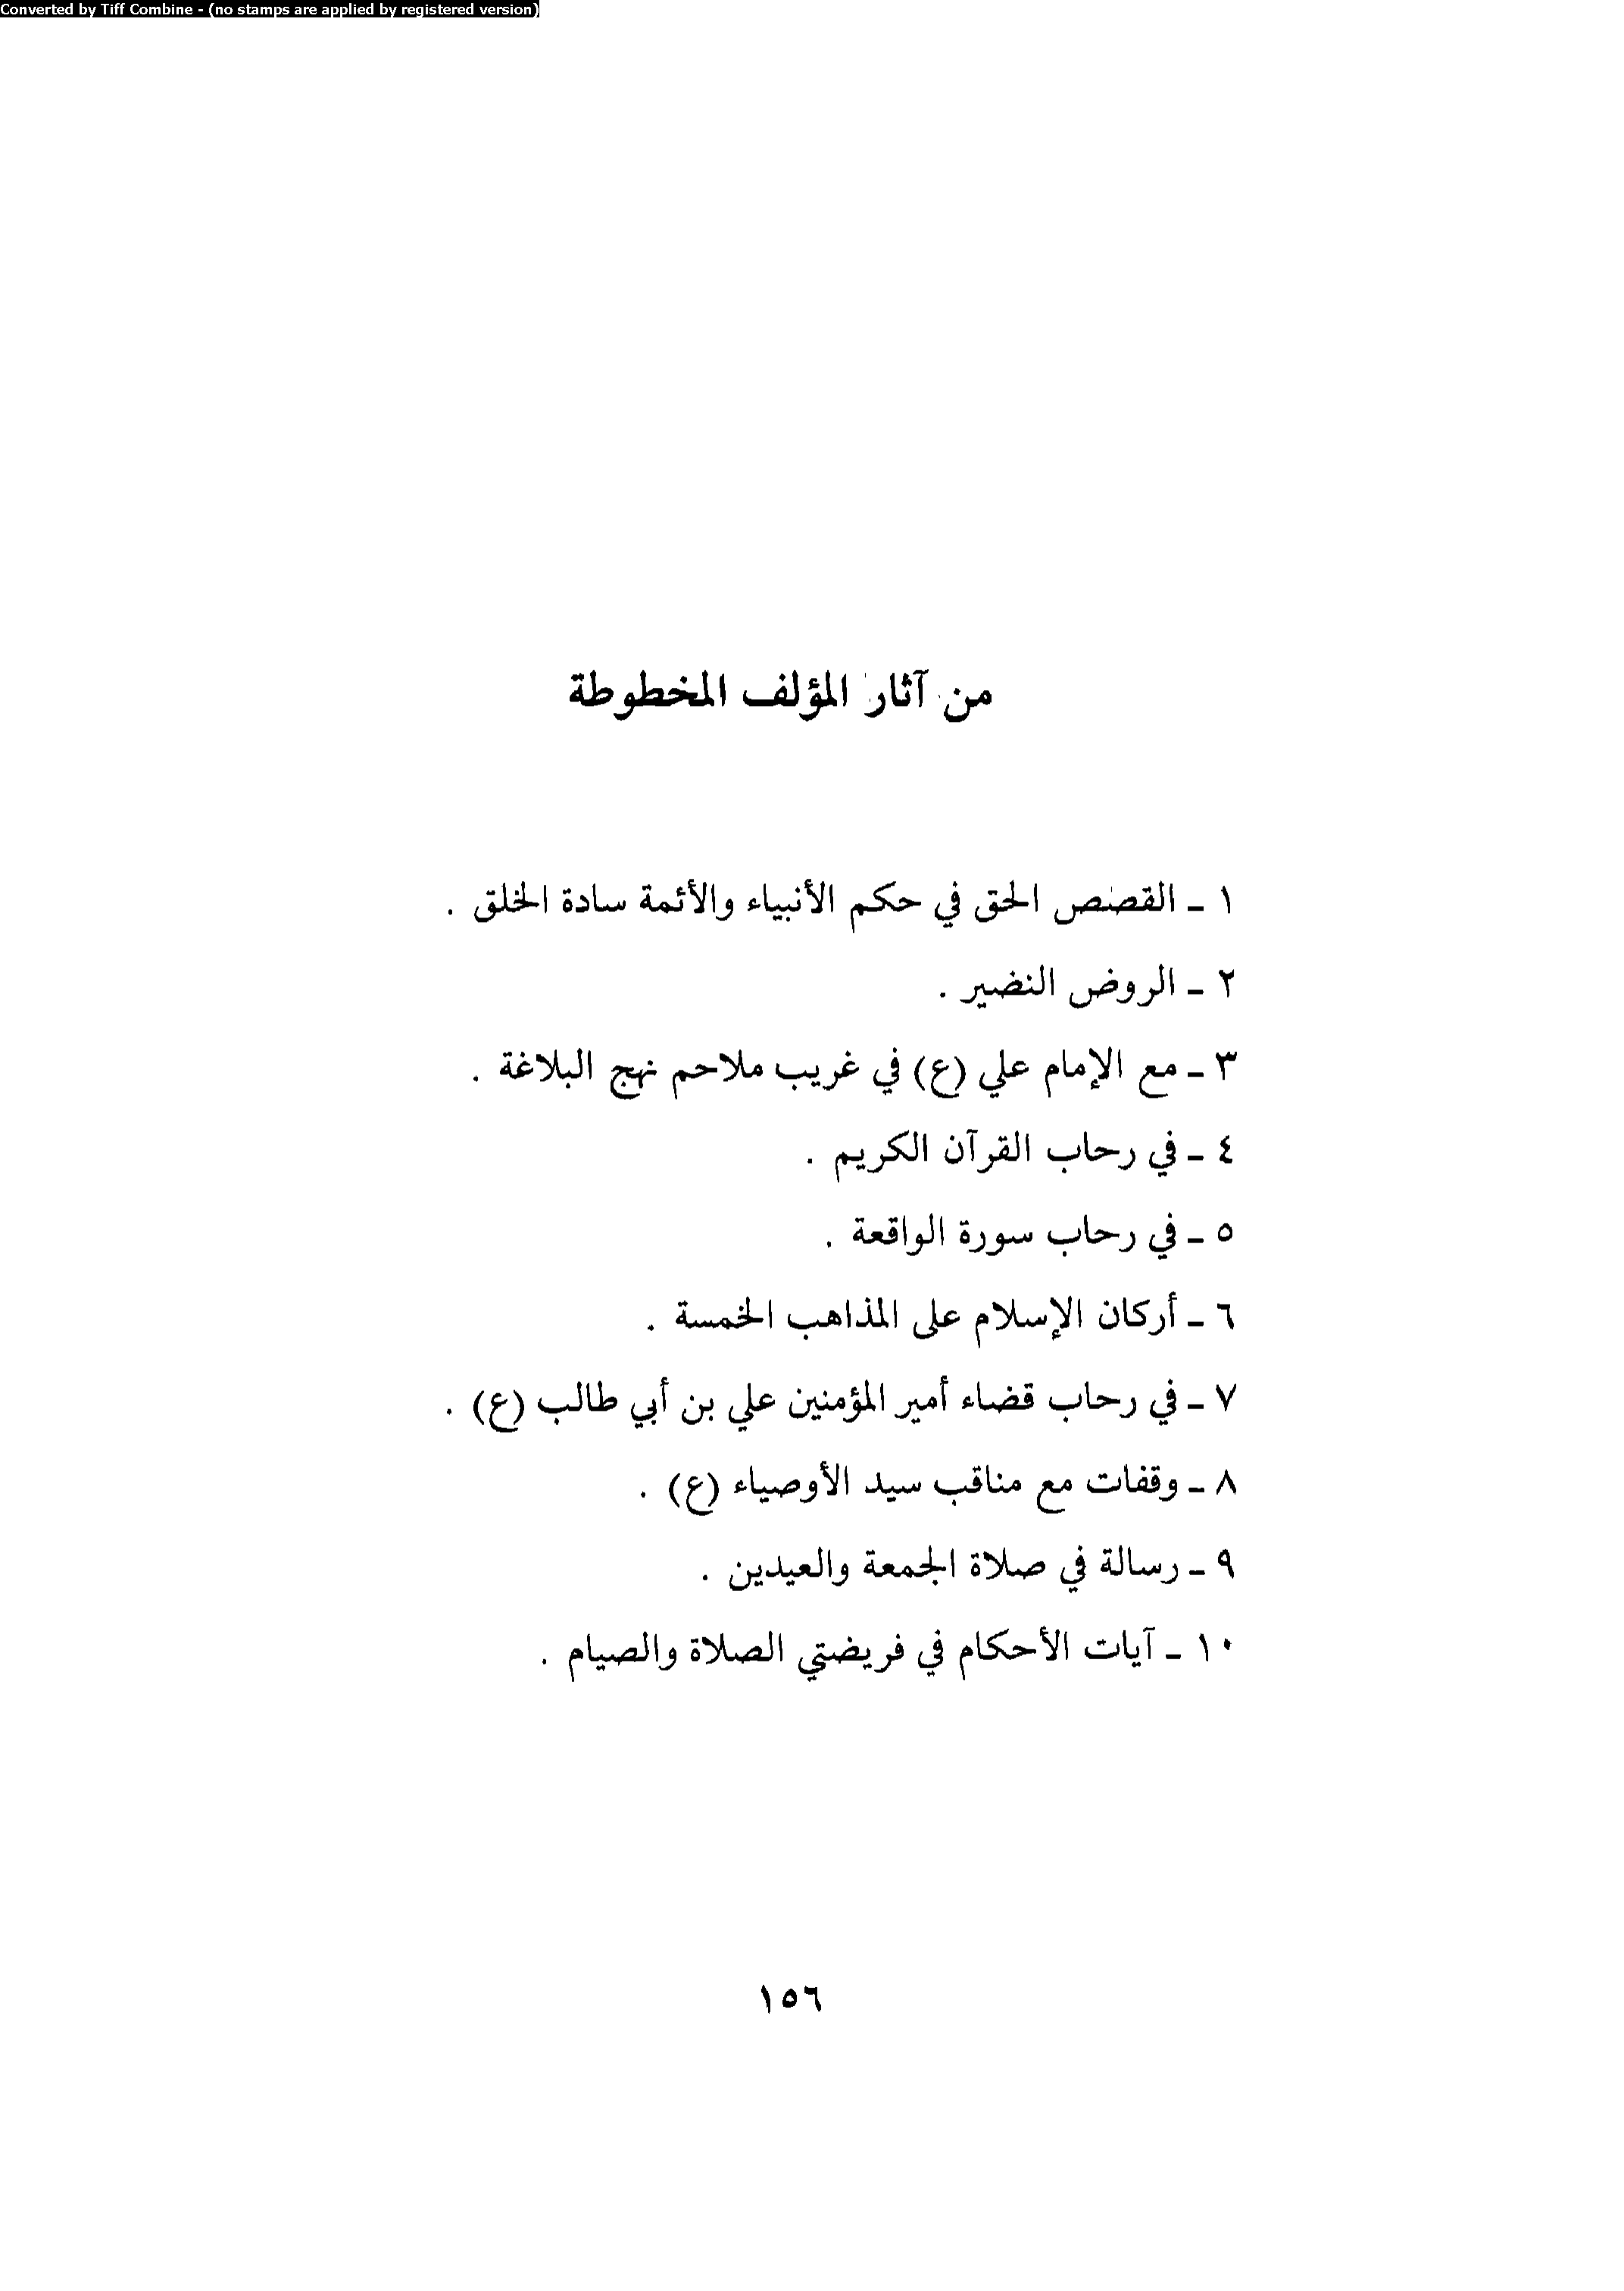 Converted by Tiff Combine - (no stamps are applied by registered version)
من آثار المؤلف المخطوطة
١ ـ القصص الحق في حكم الأنبياء والأئمة سادة الخلق .
٢ ـ الروض النضير .
٣ ـ مع الإمام علي (ع) في غريب ملاحم نهج البلاغة .
٤ ـ في رحاب القرآن الكريم .
٥ ـ في رحاب سورة الواقعة .
٦ ـ أركان الإسلام على المذاهب الخمسة .
٧ ـ في رحاب قضاء أمير المؤمنين علي بن أبي طالب (ع) .
٨ ـ وقفات مع مناقب سيد الأوصياء (ع) .
٩ ـ رسالة في صلاة الجمعة والعيدين .
١٠ ـ آيات الأحكام في فريضتي الصلاة والصيام .
١٥٦